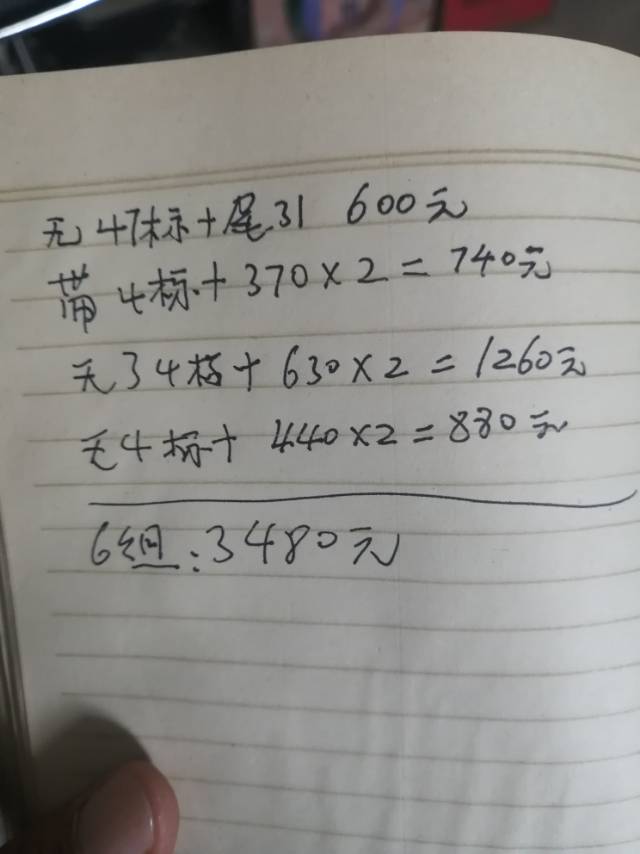 无47标+尾31 600元
带4标+370×2=740元
无34标+630×2=1260元
无4标+440×2=880元
6组:3480元